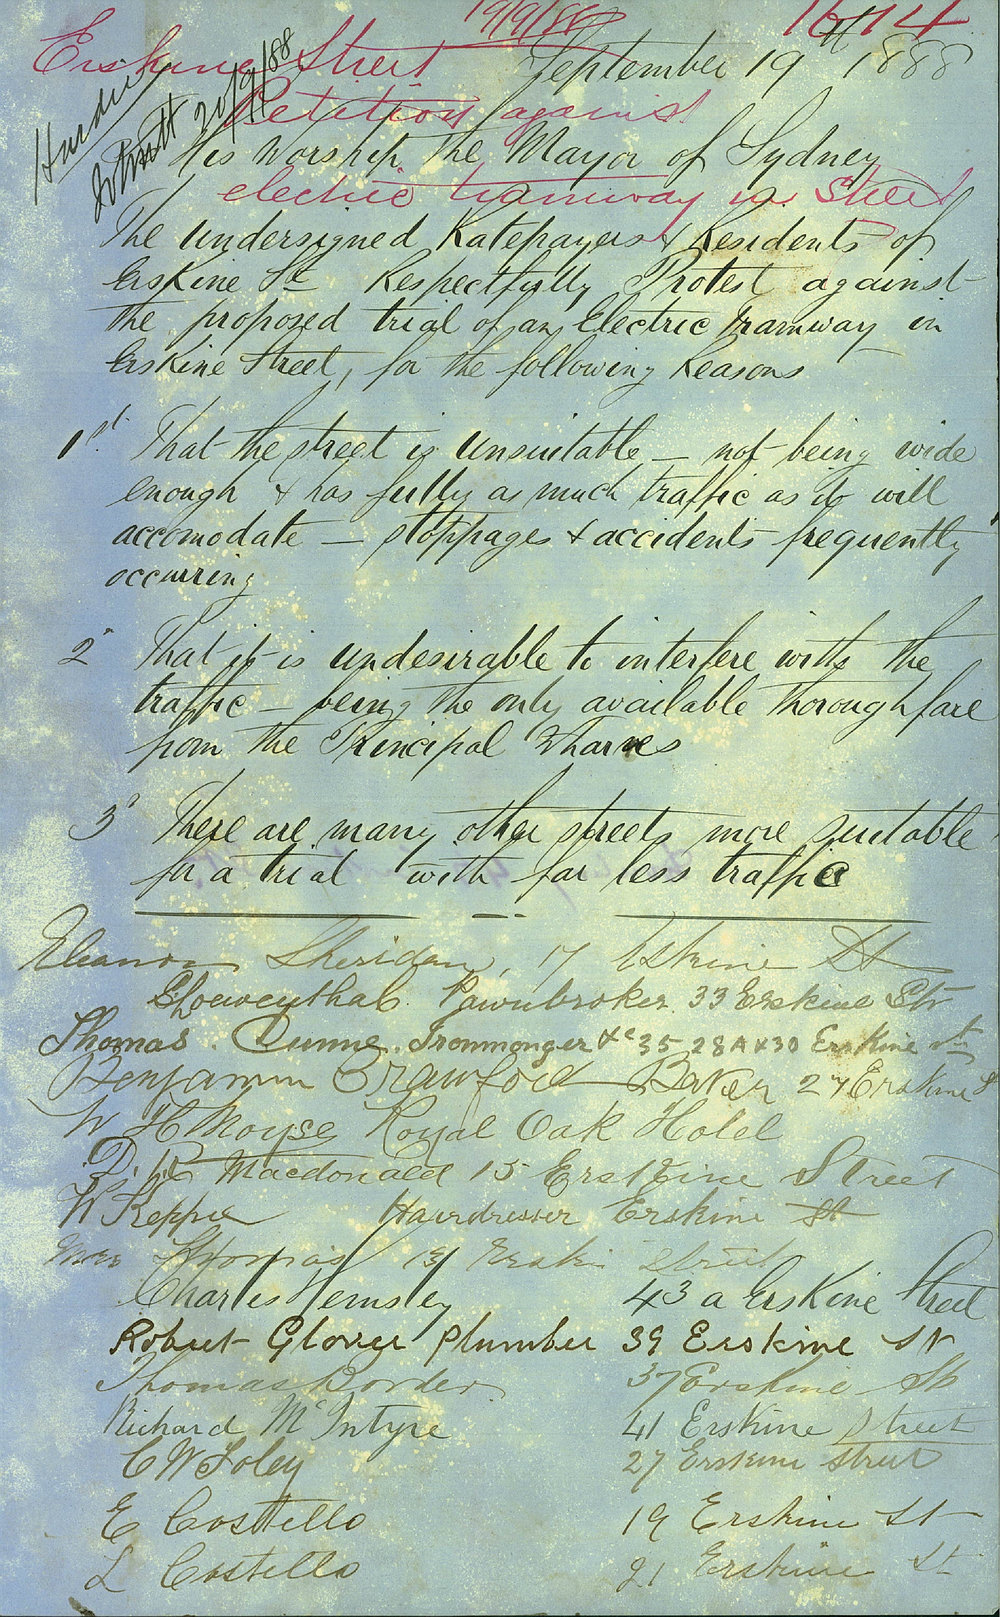 19/9/88 1674
Erskine Street September 19th 1888
Petition against
20/9/88
His Worship the Mayor of Sydney
electric tramway in Street
The Undersigned Ratepayers & Residents of
Erskine St Respectfully Protest against
the proposed trial of an Electric Tramway in
Erskine Street, for the following Reasons
1st That the street is Unsuitable — not being wide
enough & has fully as much traffic as it will
accomodate — stoppages & accidents frequently
occurring
2" That it is undesirable to interfere with the
traffic — being the only available thoroughfare
from the Principal Wharves
3" There are many other streets more suitable
for a trial with far less traffic
Eleanor Sheridan, 17 Erskine St
Loewenthal Pawnbroker 33 Erskine Str
Thomas Dunne Ironmonger &c 35 28A & 30 Erskine St
Benjamin Crawford Baker 27 Erskine S
W H Moyse Royal Oak Hotel
D. Macdonald 15 Erskine Street
W Keppie Hairdresser Erskine St
Mrs Thomas 13 Erskine Street
Charles Hemsley 43 a Erskine Street
Robert Glover Plumber 39 Erskine St
Thomas Border 37 Erskine St
Richard McIntyre 41 Erskine Street
C W Foley 27 Erskine Street
E Costello 19 Erskine St
L Costello 21 Erskine St